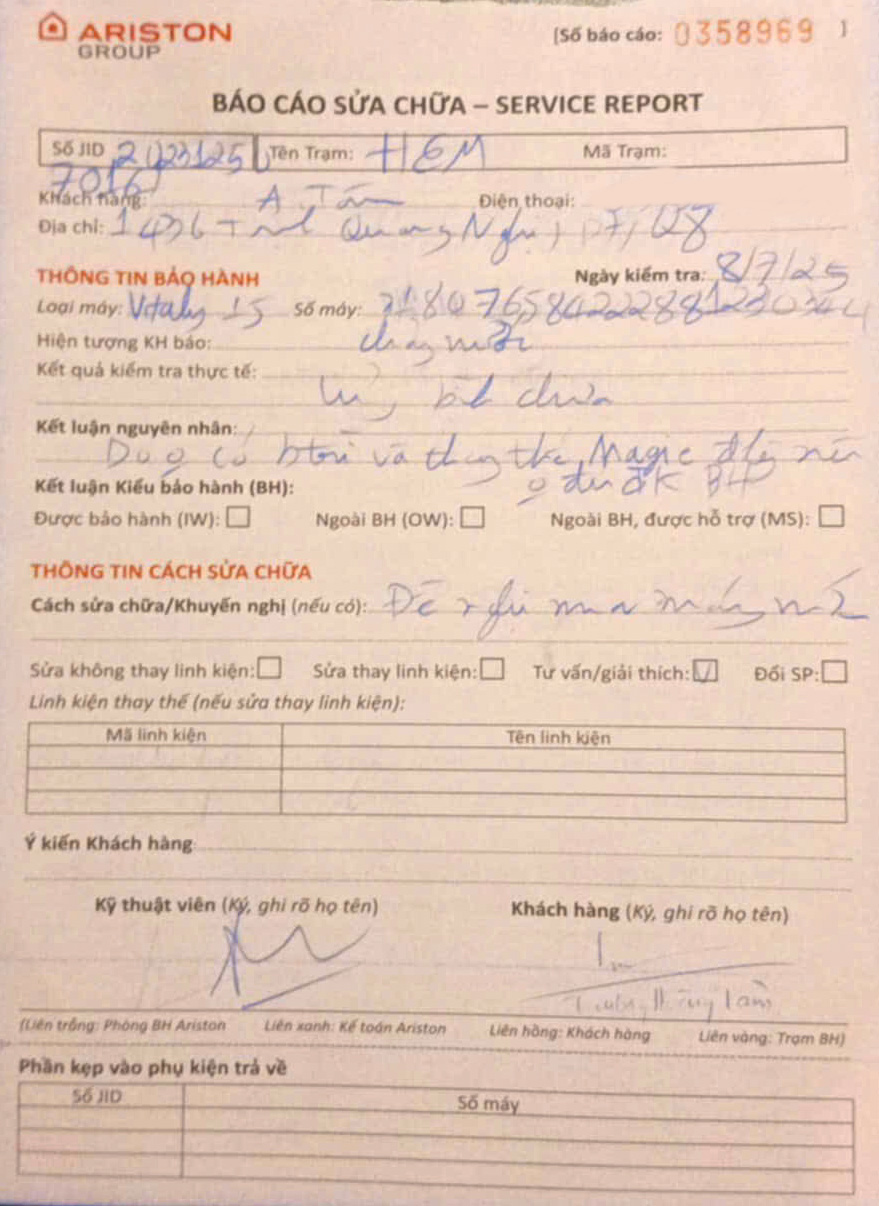 ARISTON
GROUP
(Số báo cáo: 0358969 )
BÁO CÁO SỬA CHỮA – SERVICE REPORT
Số JID Tên Trạm: HEM Mã Trạm:
Khách hàng: A. Tâm Điện thoại:
Địa chỉ: Quang Nghị, P7, Q8
THÔNG TIN BẢO HÀNH
Ngày kiểm tra: 8/7/25
Loại máy: Vitaly 15 Số máy:
Hiện tượng KH báo: chảy nước
Kết quả kiểm tra thực tế:
bình chứa
Kết luận nguyên nhân:
Do o có và thay thế Magie đầy nên
Kết luận Kiểu bảo hành (BH): o đủ đk BH
Được bảo hành (IW): Ngoài BH (OW): Ngoài BH, được hỗ trợ (MS):
THÔNG TIN CÁCH SỬA CHỮA
Cách sửa chữa/Khuyến nghị (nếu có): Đề nghị mua máy mới
Sửa không thay linh kiện: Sửa thay linh kiện: Tư vấn/giải thích: Đổi SP:
Linh kiện thay thế (nếu sửa thay linh kiện):
Mã linh kiện Tên linh kiện
Ý kiến Khách hàng
Kỹ thuật viên (Ký, ghi rõ họ tên) Khách hàng (Ký, ghi rõ họ tên)
(Liên trắng: Phòng BH Ariston Liên xanh: Kế toán Ariston Liên hồng: Khách hàng Liên vàng: Trạm BH)
Phần kẹp vào phụ kiện trả về
Số JID Số máy